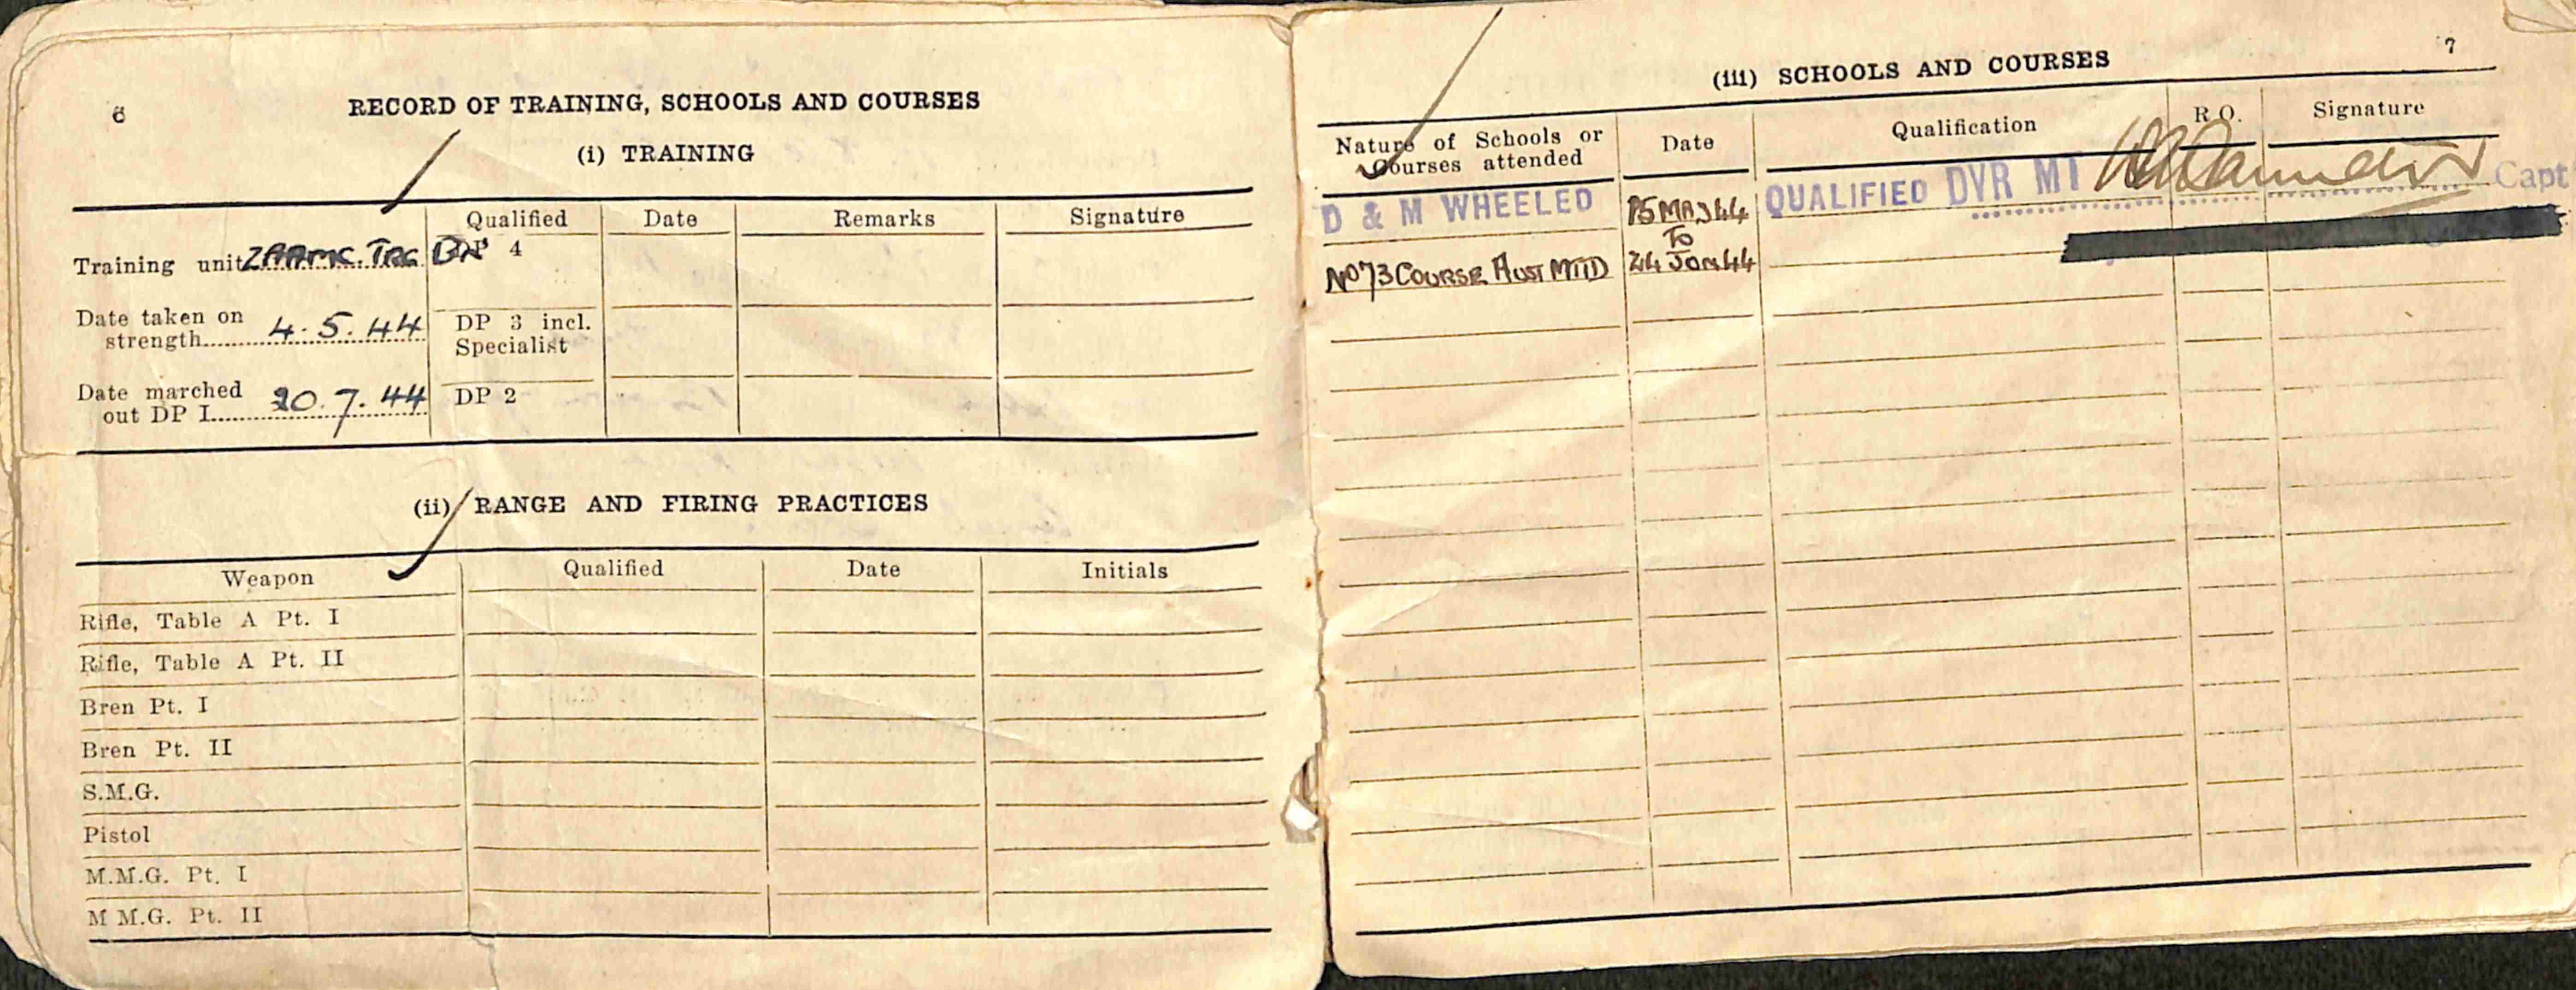 6
RECORD OF TRAINING, SCHOOLS AND COURSES
(i) TRAINING
Qualified Date Remarks Signature
Training unit 2AAMC. TRG BN DP 4
Date taken on
strength 4.5.44 DP 3 incl.
Specialist
Date marched
out DP I 20.7.44 DP 2
(ii) RANGE AND FIRING PRACTICES
Weapon Qualified Date Initials
Rifle, Table A Pt. I
Rifle, Table A Pt. II
Bren Pt. I
Bren Pt. II
S.M.G.
Pistol
M.M.G. Pt. I
M M.G. Pt. II
7
(iii) SCHOOLS AND COURSES
Nature of Schools or
Courses attended Date Qualification R.O. Signature
D & M WHEELED 15 MAY 44 QUALIFIED DVR MT Capt
TO
No 73 COURSE AUST MTTD 24 JUN 44